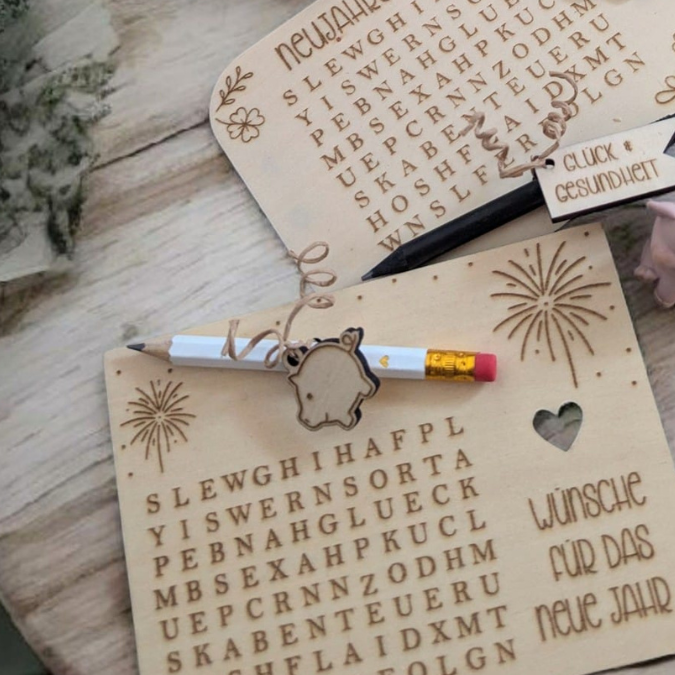 NEUJAHRS
SLEWGHI
YISWERNS
PEBNAHGLUE
MBSEXAHPKUC
UEPCRNNZODHM
SKABENTEUERU
HOSHF AIDXMT
WNSLF ER LGN
GLÜCK &
GESUNDHEIT
SLEWGHIHAFPL
YISWERNSORTA
PEBNAHGLUECK
MBSEXAHPKUCL
UEPCRNNZODHM
SKABENTEUERU
SHFLAIDXMT
OLGN
WÜNSCHE
FÜR DAS
NEUE JAHR